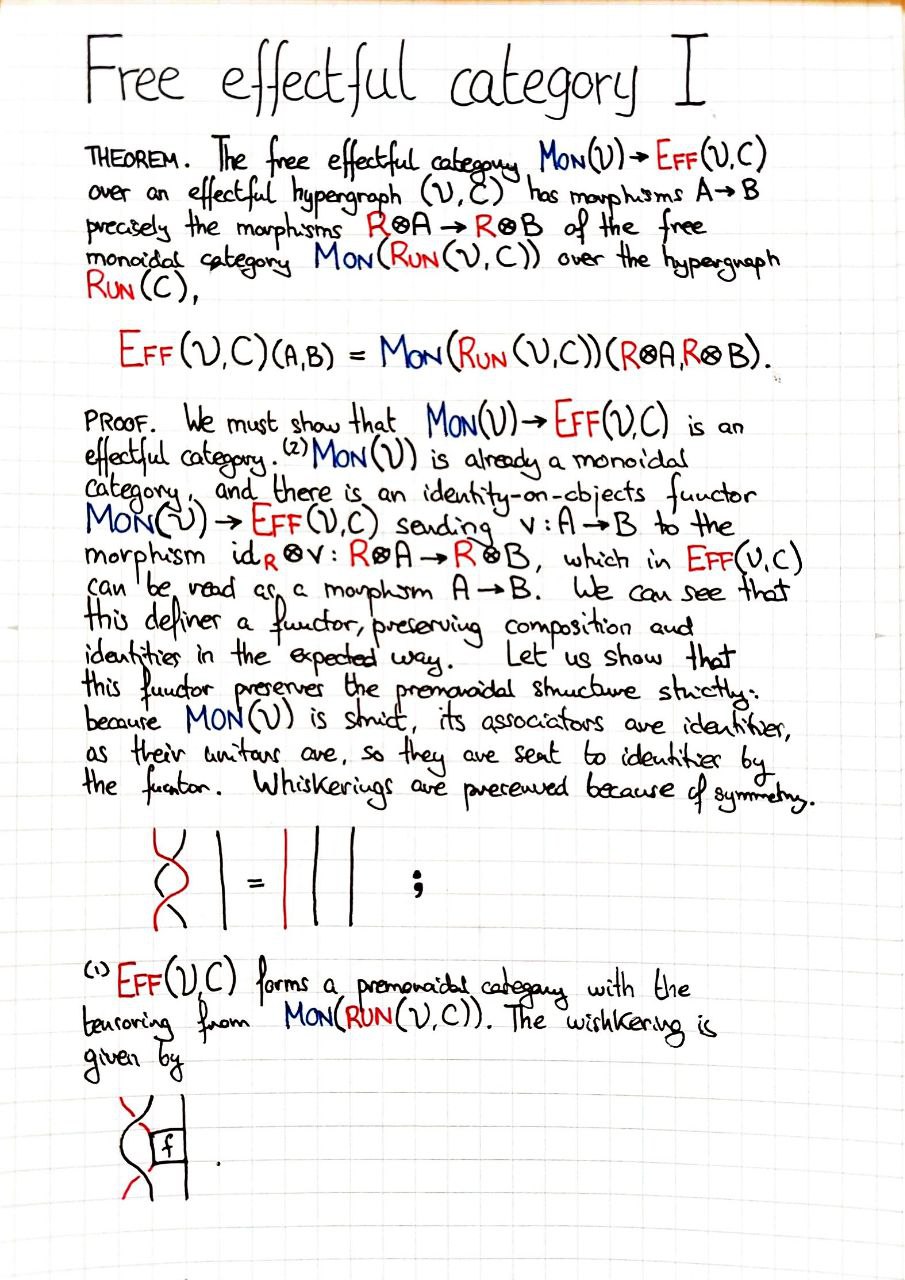 Free effectful category I
THEOREM. The free effectful category MON(𝒱)→EFF(𝒱,𝒞)
over an effectful hypergraph (𝒱,𝒞) has morphisms A→B
precisely the morphisms R⊗A → R⊗B of the free
monoidal category MON(RUN(𝒱,𝒞)) over the hypergraph
RUN(𝒞),
EFF(𝒱,𝒞)(A,B) = MON(RUN(𝒱,𝒞))(R⊗A,R⊗B).
PROOF. We must show that MON(𝒱)→EFF(𝒱,𝒞) is an
effectful category. (2) MON(𝒱) is already a monoidal
category, and there is an identity-on-objects functor
MON(𝒱)→EFF(𝒱,𝒞) sending v:A→B to the
morphism id_R⊗v: R⊗A→R⊗B, which in EFF(𝒱,𝒞)
can be read as a morphism A→B. We can see that
this defines a functor, preserving composition and
identities in the expected way. Let us show that
this functor preserves the premonoidal structure strictly:
because MON(𝒱) is strict, its associators are identities,
as their unitors are, so they are sent to identities by
the functor. Whiskerings are preserved because of symmetry.
= ;
(1) EFF(𝒱,𝒞) forms a premonoidal category with the
tensoring from MON(RUN(𝒱,𝒞)). The wishkering is
given by
f .